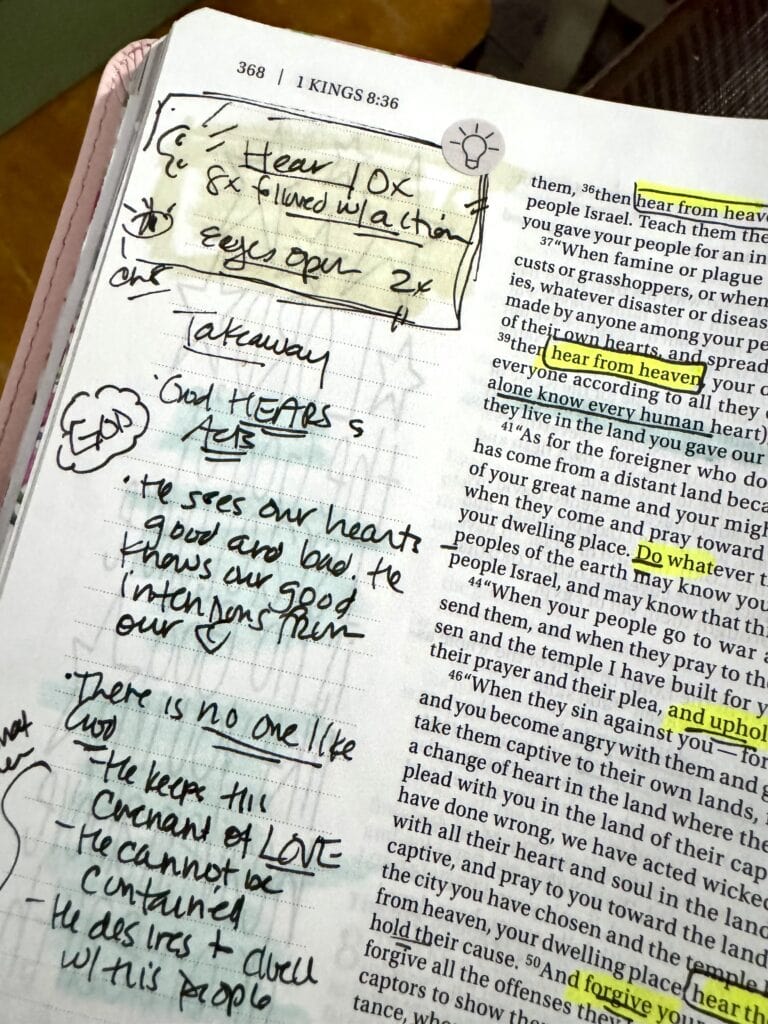 368 | 1 KINGS 8:36
Hear 10x
8x fllwed w/action
eeyes open 2x
ch8
Takeaway
GOD
· God HEARS &
Acts
· He sees our hearts -
good and bad. He
knows our good
intentions from
our
· There is no one like
God
- He keeps His
Covenant of LOVE
- He cannot be
contained
- He desires to dwell
w/ His people
them, 36then hear from heav
people Israel. Teach them the
you gave your people for an in
37"When famine or plague
custs or grasshoppers, or when
ies, whatever disaster or diseas
made by anyone among your pe
of their own hearts, and spread
39then hear from heaven, your d
everyone according to all they
alone know every human heart)
they live in the land you gave our
41"As for the foreigner who do
has come from a distant land beca
of your great name and your migh
when they come and pray toward
your dwelling place. Do whatever t
peoples of the earth may know you
people Israel, and may know that thi
44"When your people go to war a
send them, and when they pray to th
sen and the temple I have built for y
their prayer and their plea, and uphol
46"When they sin against you—for
and you become angry with them and g
take them captive to their own lands,
a change of heart in the land where the
plead with you in the land of their cap
have done wrong, we have acted wicked
with all their heart and soul in the land
captive, and pray to you toward the land
the city you have chosen and the temple I
from heaven, your dwelling place, hear the
hold their cause. 50And forgive your
forgive all the offenses they
captors to show them
tance, who